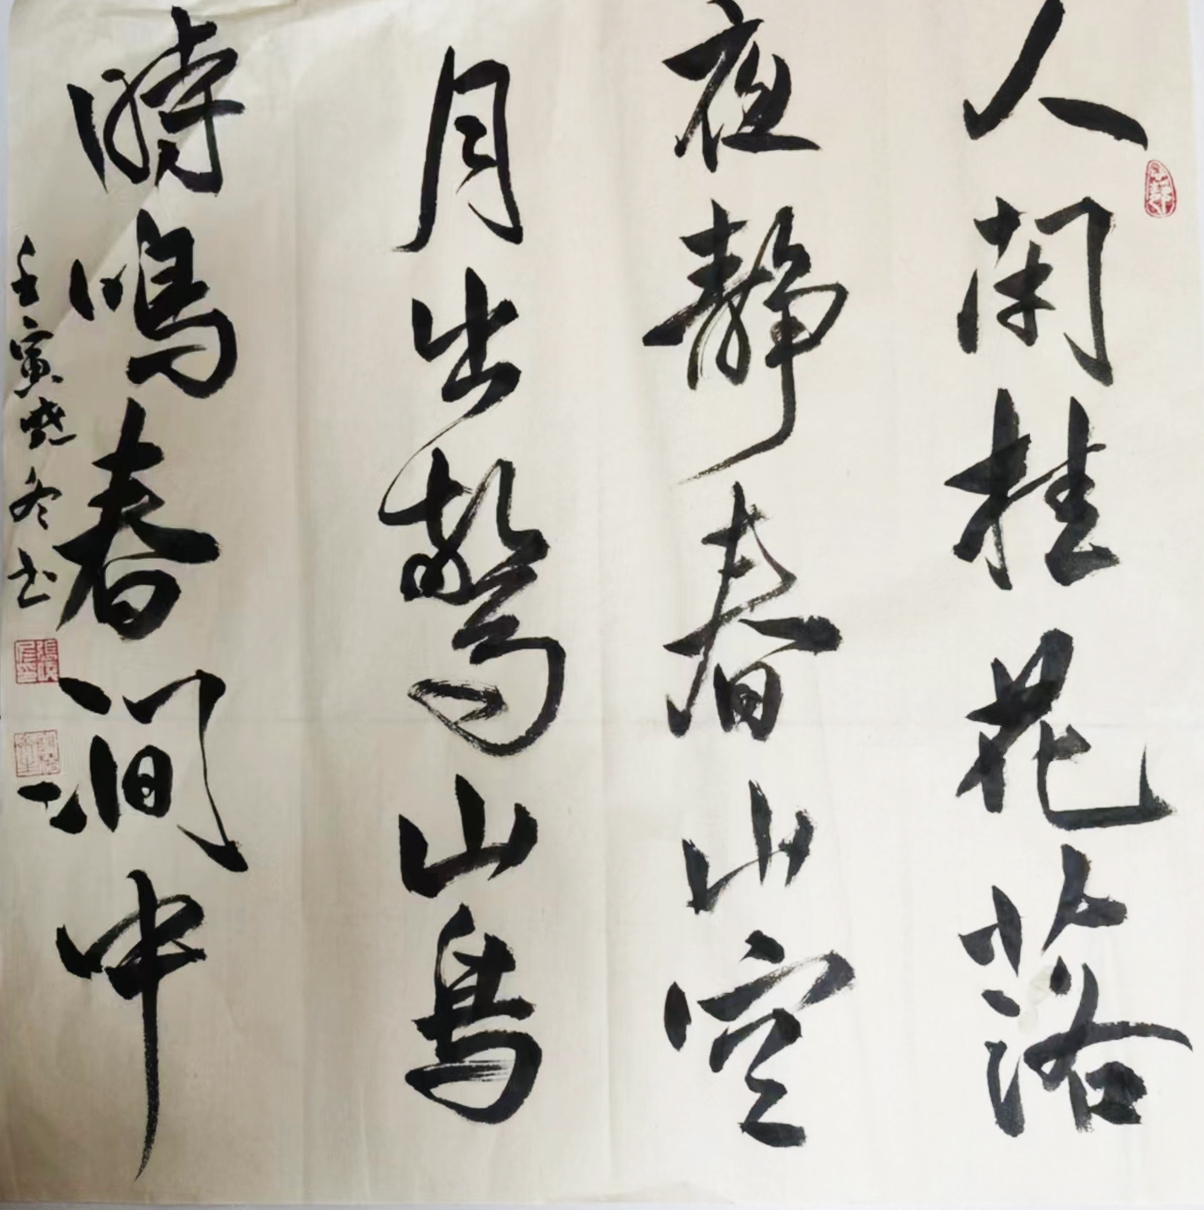 人閑桂花落
夜靜春山空
月出驚山鳥
時鳴春澗中
壬寅晓冬书